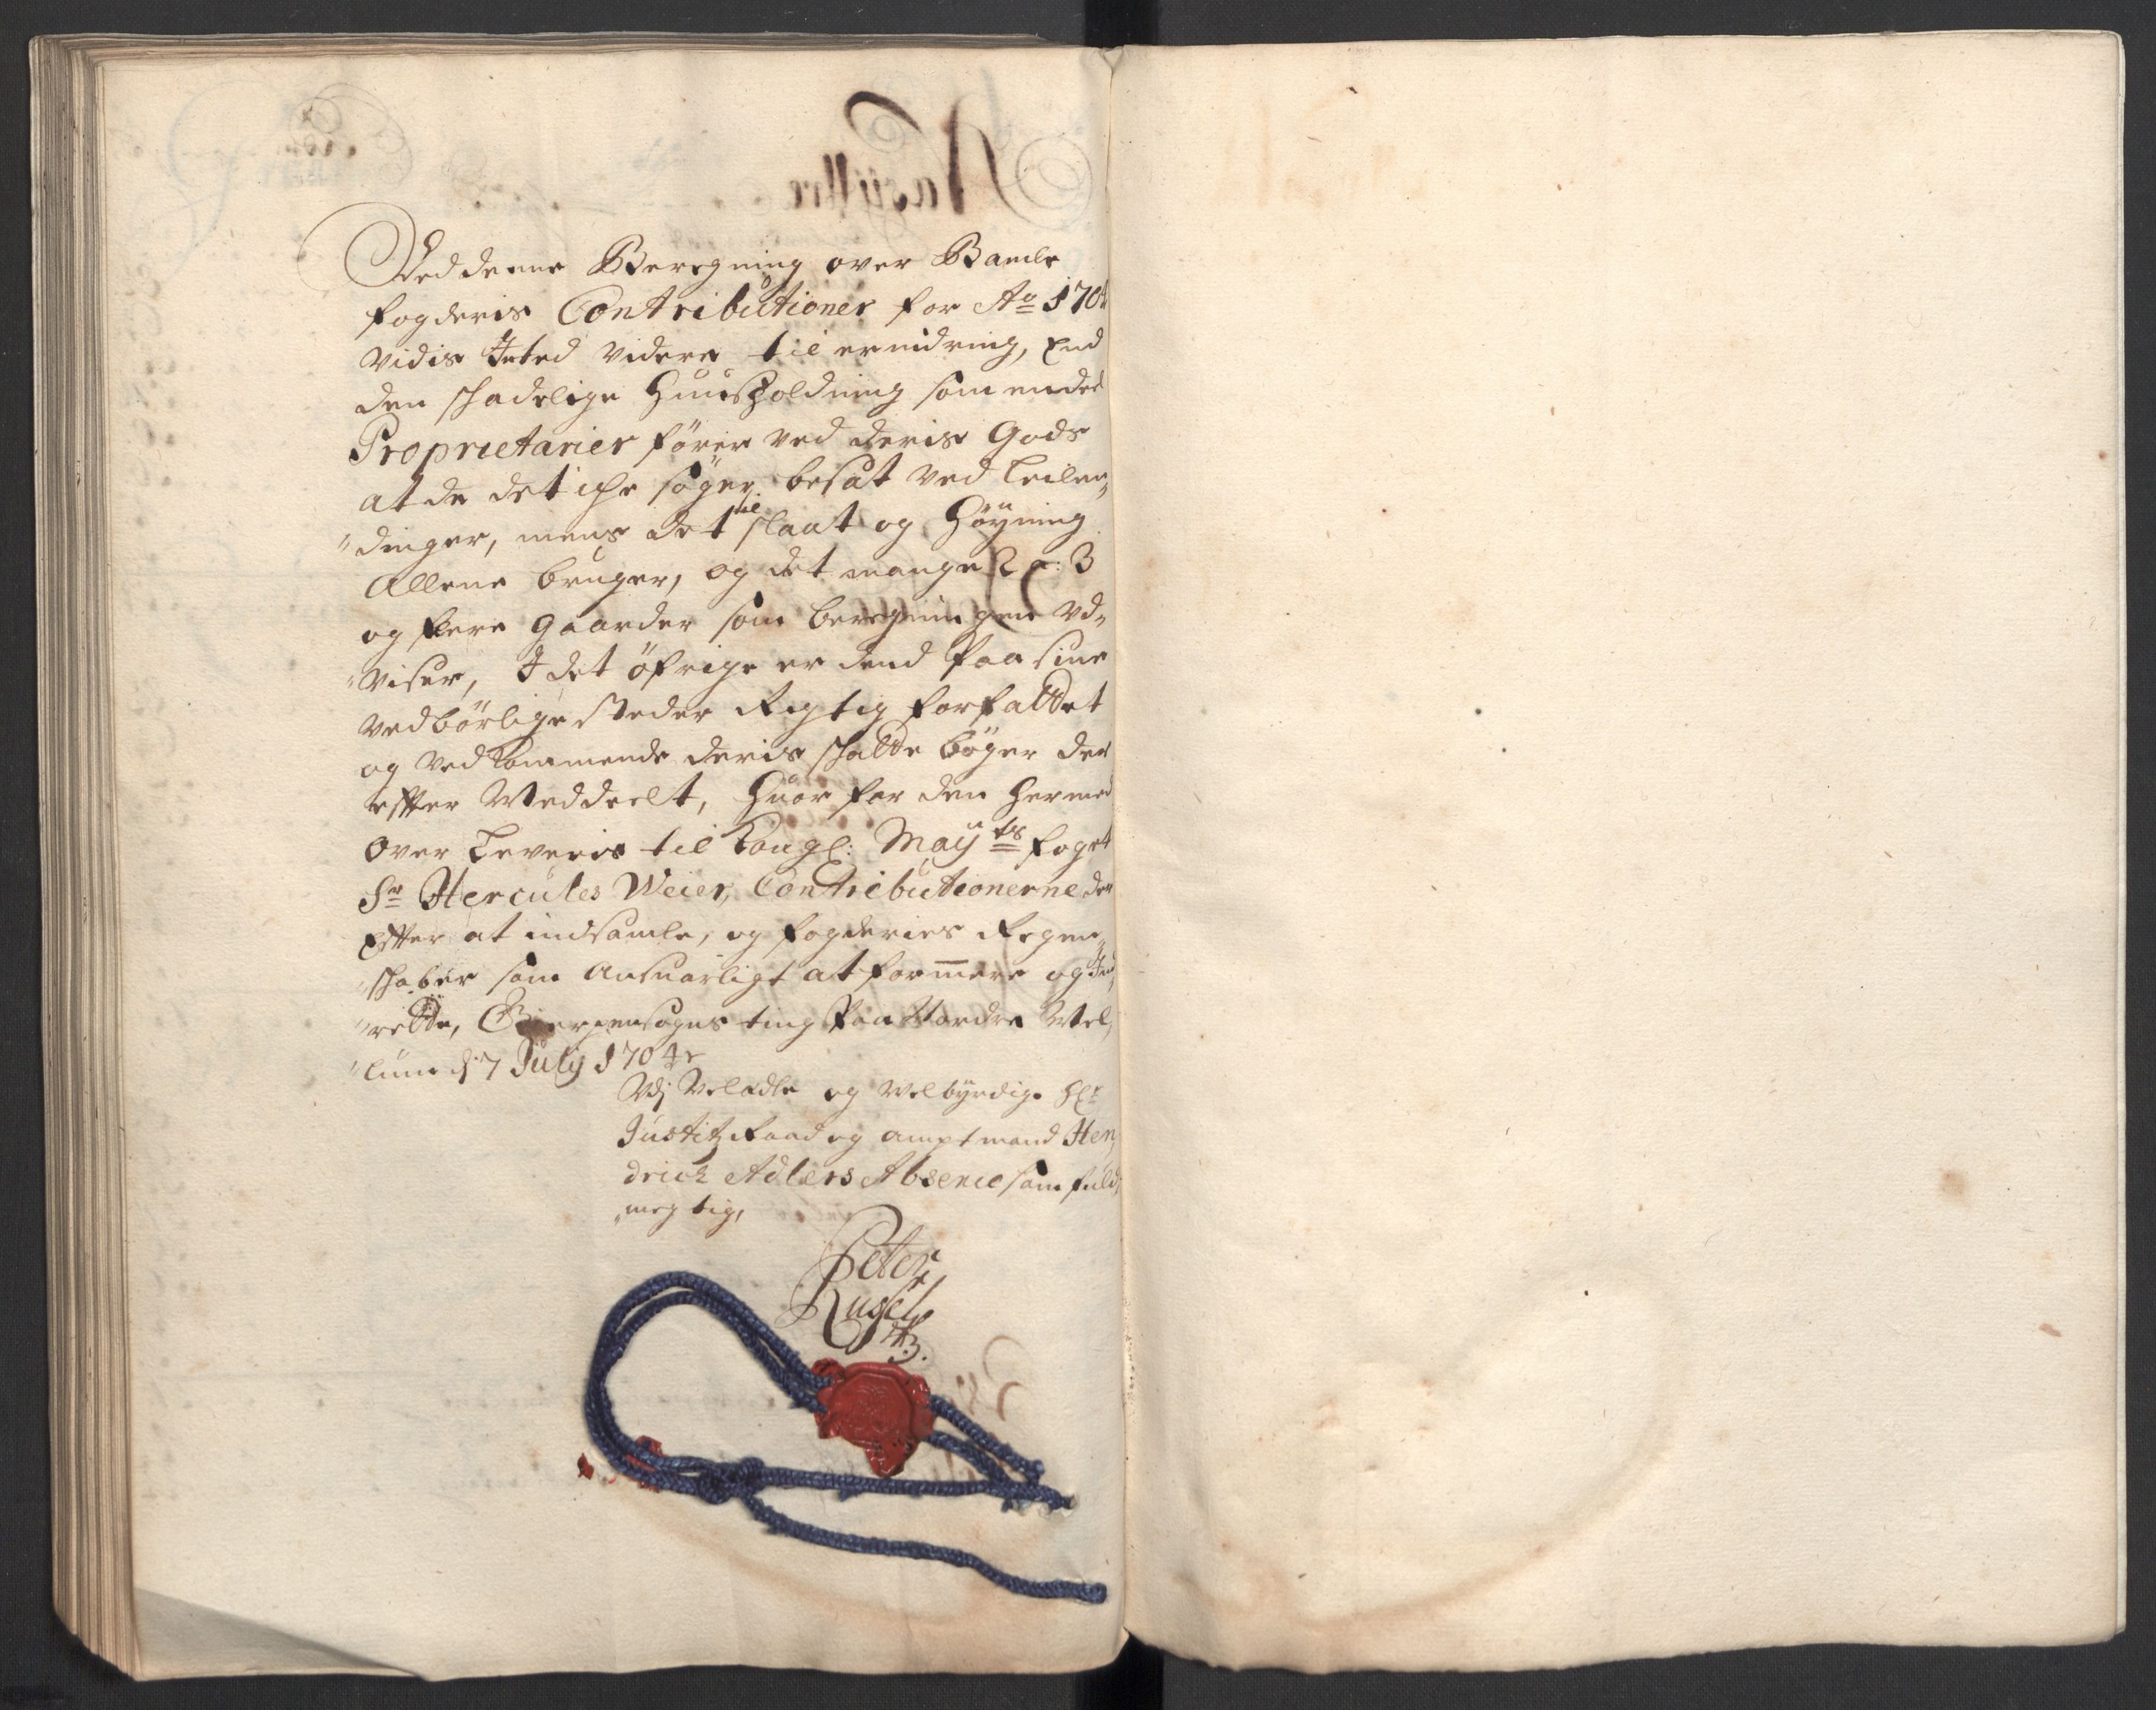 Ved denne Beregning over Bamle
fogderis Contributioner for Ao 1704
vidis Inted videre til erindring, End
den schadelige Huusholdning som endeel
Proprietarier fører ved deris Gods
at de det iche søger besat ved Leilen„
„dinger, mens det til slaat og Høyning
Allene bruger, og det mange 2 a: 3
og flere gaarder som beregningen vd„
„viser, I det øfrige er dend Paa sine
vedbørlige steder Rigtig forfattet
og vedkommende deris schatte bøger der
effter Meddeelt, Huor for den hermed
over Leveris til Kongl: Mayts foget
Sr Hercules Weier, Contributionerne der
Effter at indsamle, og fogderies Regen„
„schaber som Ansuarligt at formere og Ind„
„rette, Gierpensogns ting Paa Nordre Mel„
„lum d: 7 July 1704
Vdj Veladle og Velbyrdige Hr
Justitz Raad og amptmand Hen„
drick Adlers Absence som fuld„
„megtig,
Peter
Rusel